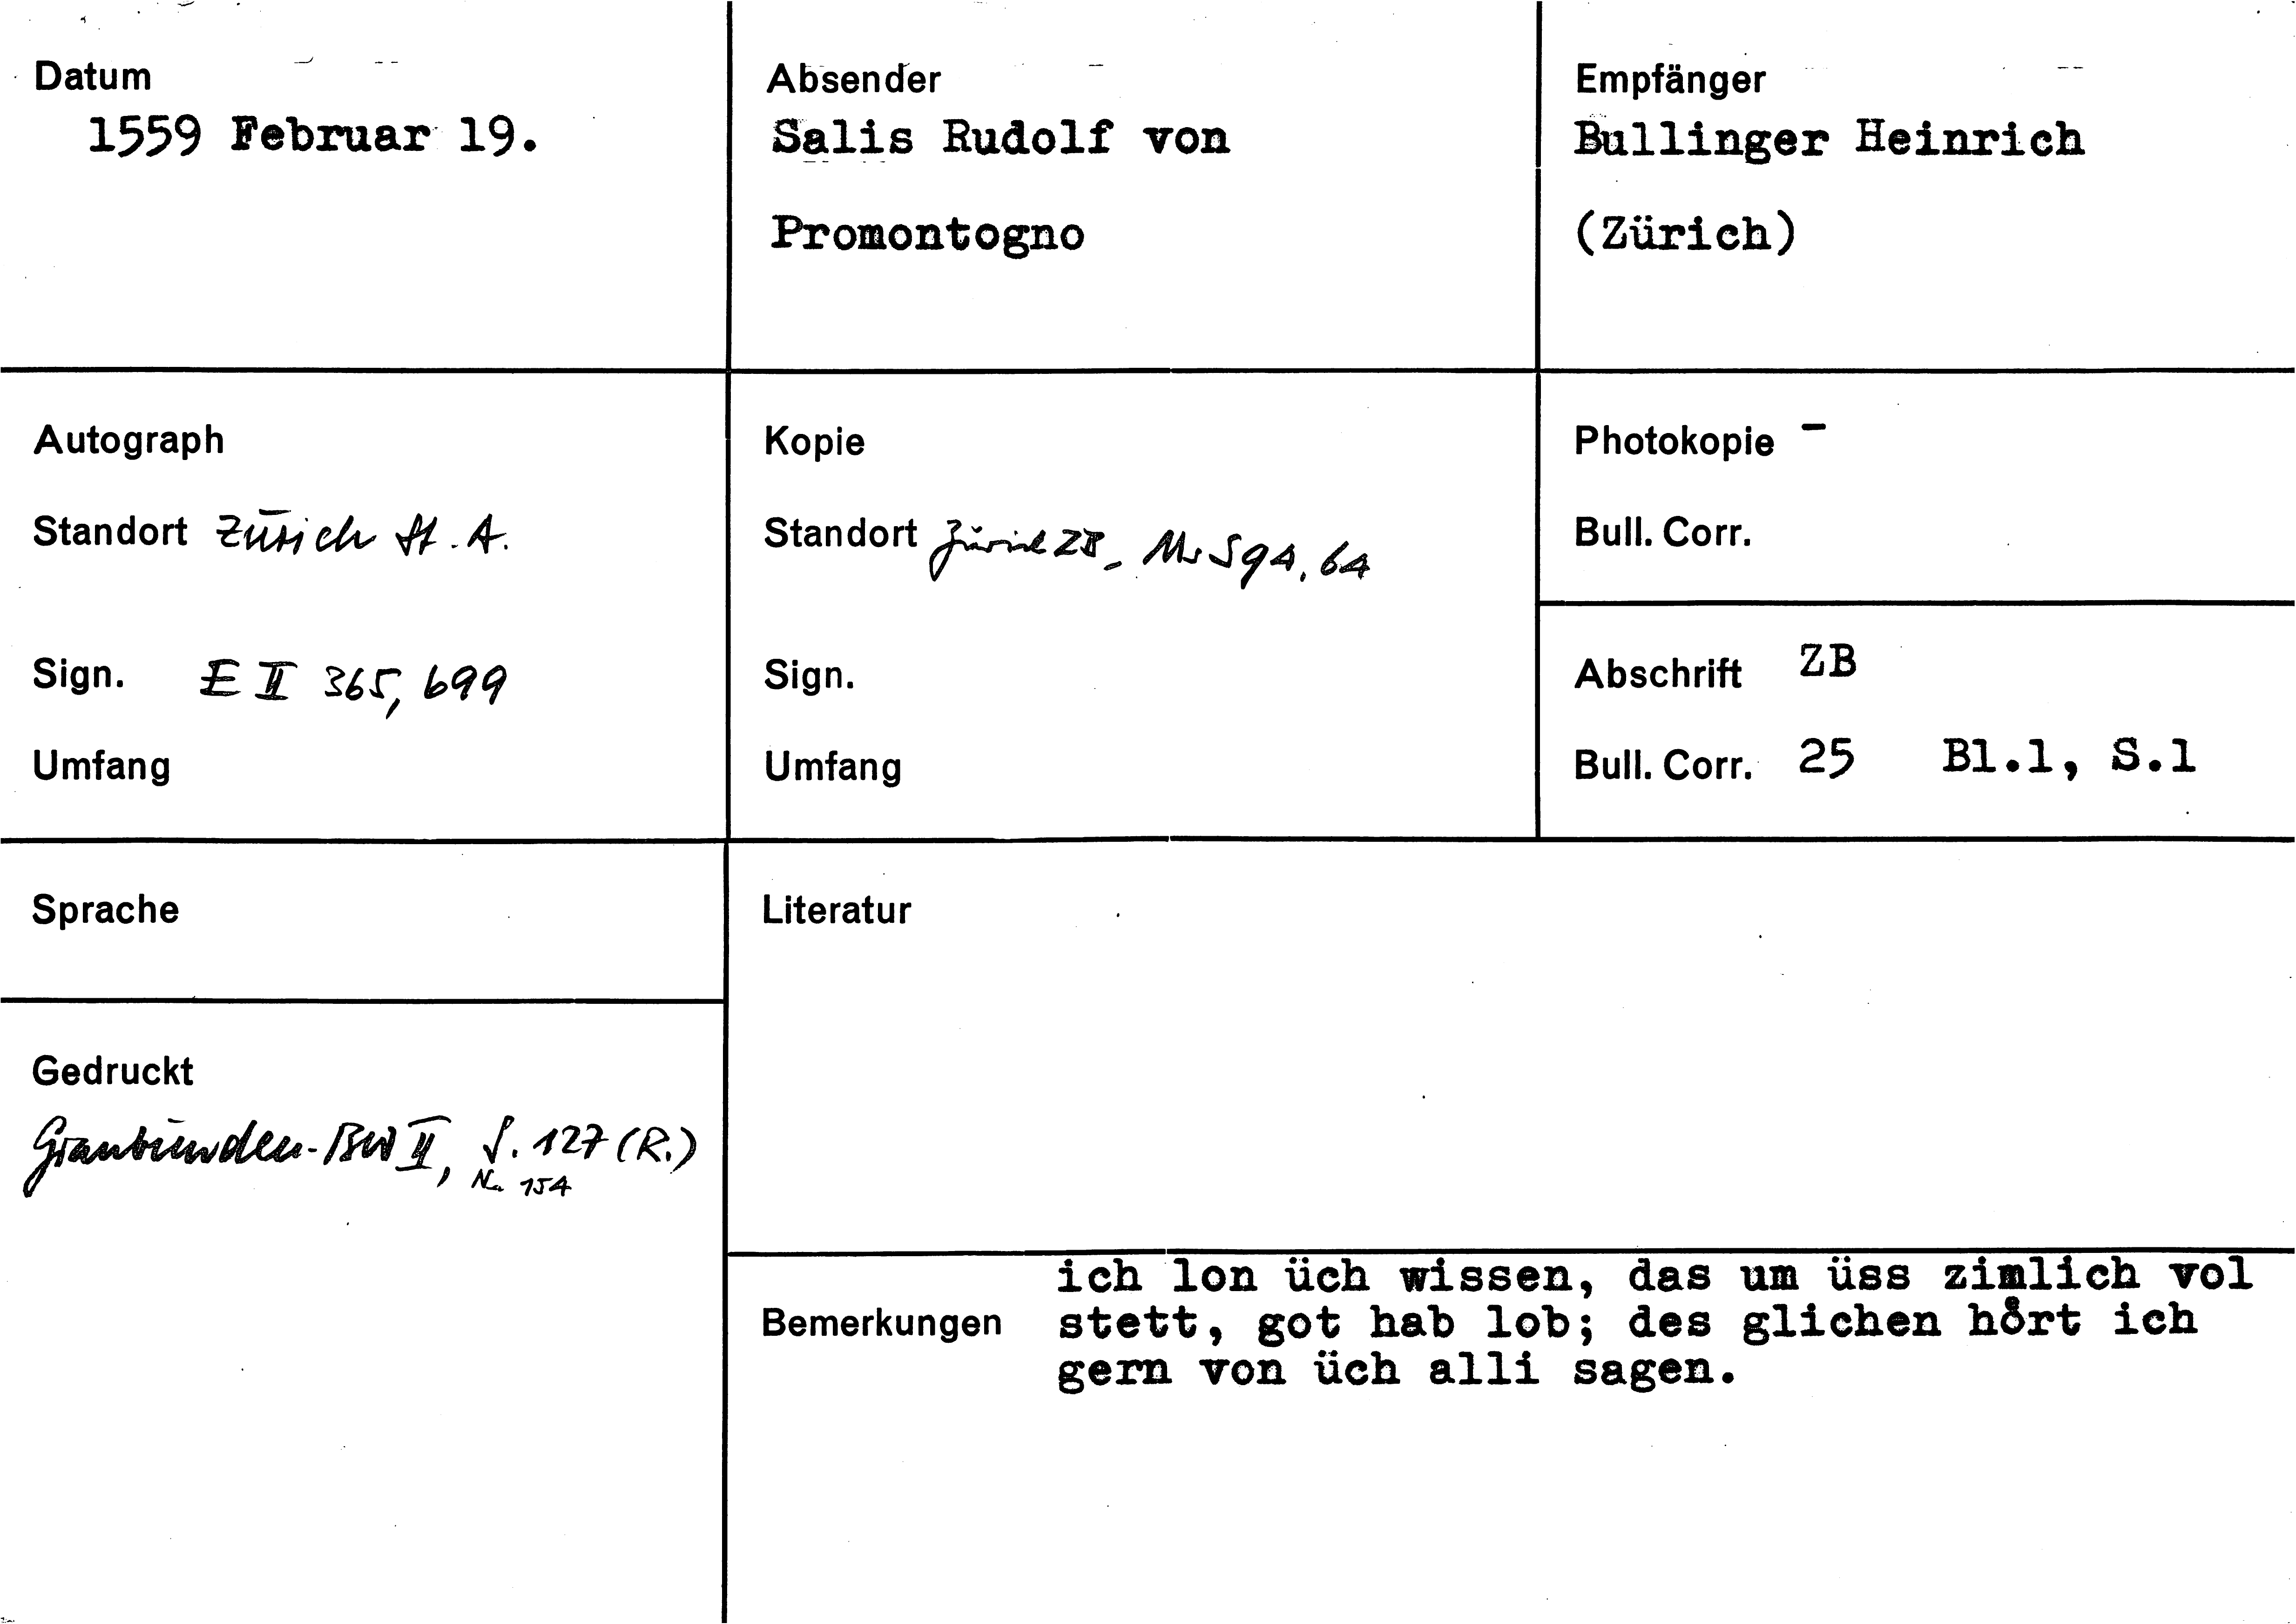 Datum
1559 Februar 19.
Absender
Salis Rudolf von
Promontogno
Empfänger
Bullinger Heinrich
(Zürich)
Autograph
Standort Zürich St. A.
Sign. E II 365, 699
Umfang
Kopie
Standort Zürich ZB, Ms S 94, 64
Sign.
Umfang
Photokopie -
Bull. Corr.
Abschrift ZB
Bull. Corr. 25 Bl.1, S.1
Sprache
Gedruckt
Graubünden-BW II, S. 127 (R.)
Nr. 154
Literatur
Bemerkungen
ich lon üch wissen, das um üss zimlich vol
stett, got hab lob; des glichen hoͤrt ich
gern von üch alli sagen.